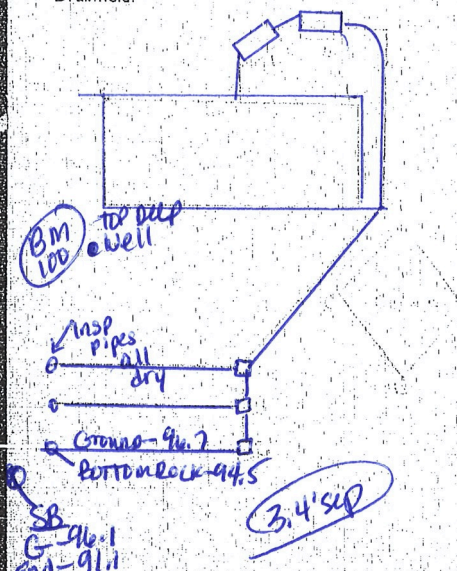 Drainfield:
BM
100
TOP DEEP
Well
Insp
Pipes
all
dry
Ground-96.7
BOTTOM ROCK-94.5
3.4' sep
SB
G-96.1
End-91.1